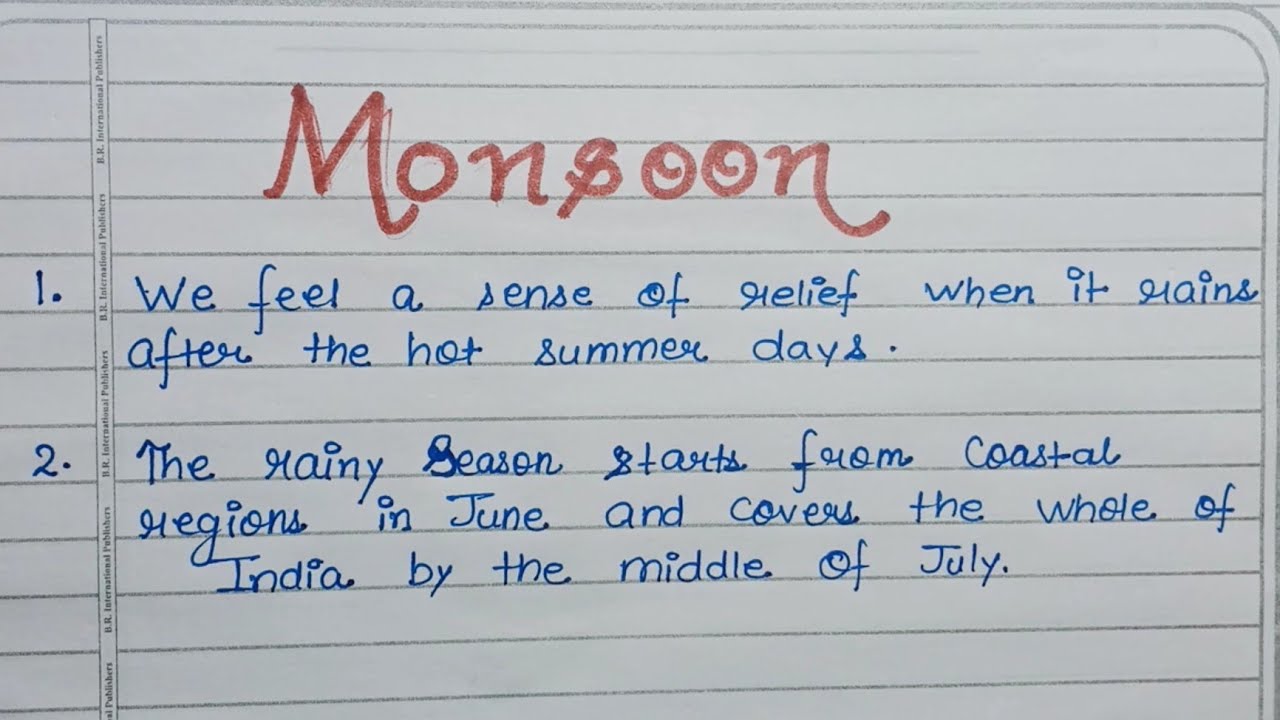 Monsoon
1. We feel a sense of relief when it rains
after the hot summer days.
2. The rainy Season starts from Coastal
regions in June and covers the whole of
India by the middle of July.
B.R. International Publishers
B.R. International Publishers
B.R. International Publishers
B.R. International Publishers
Publishers